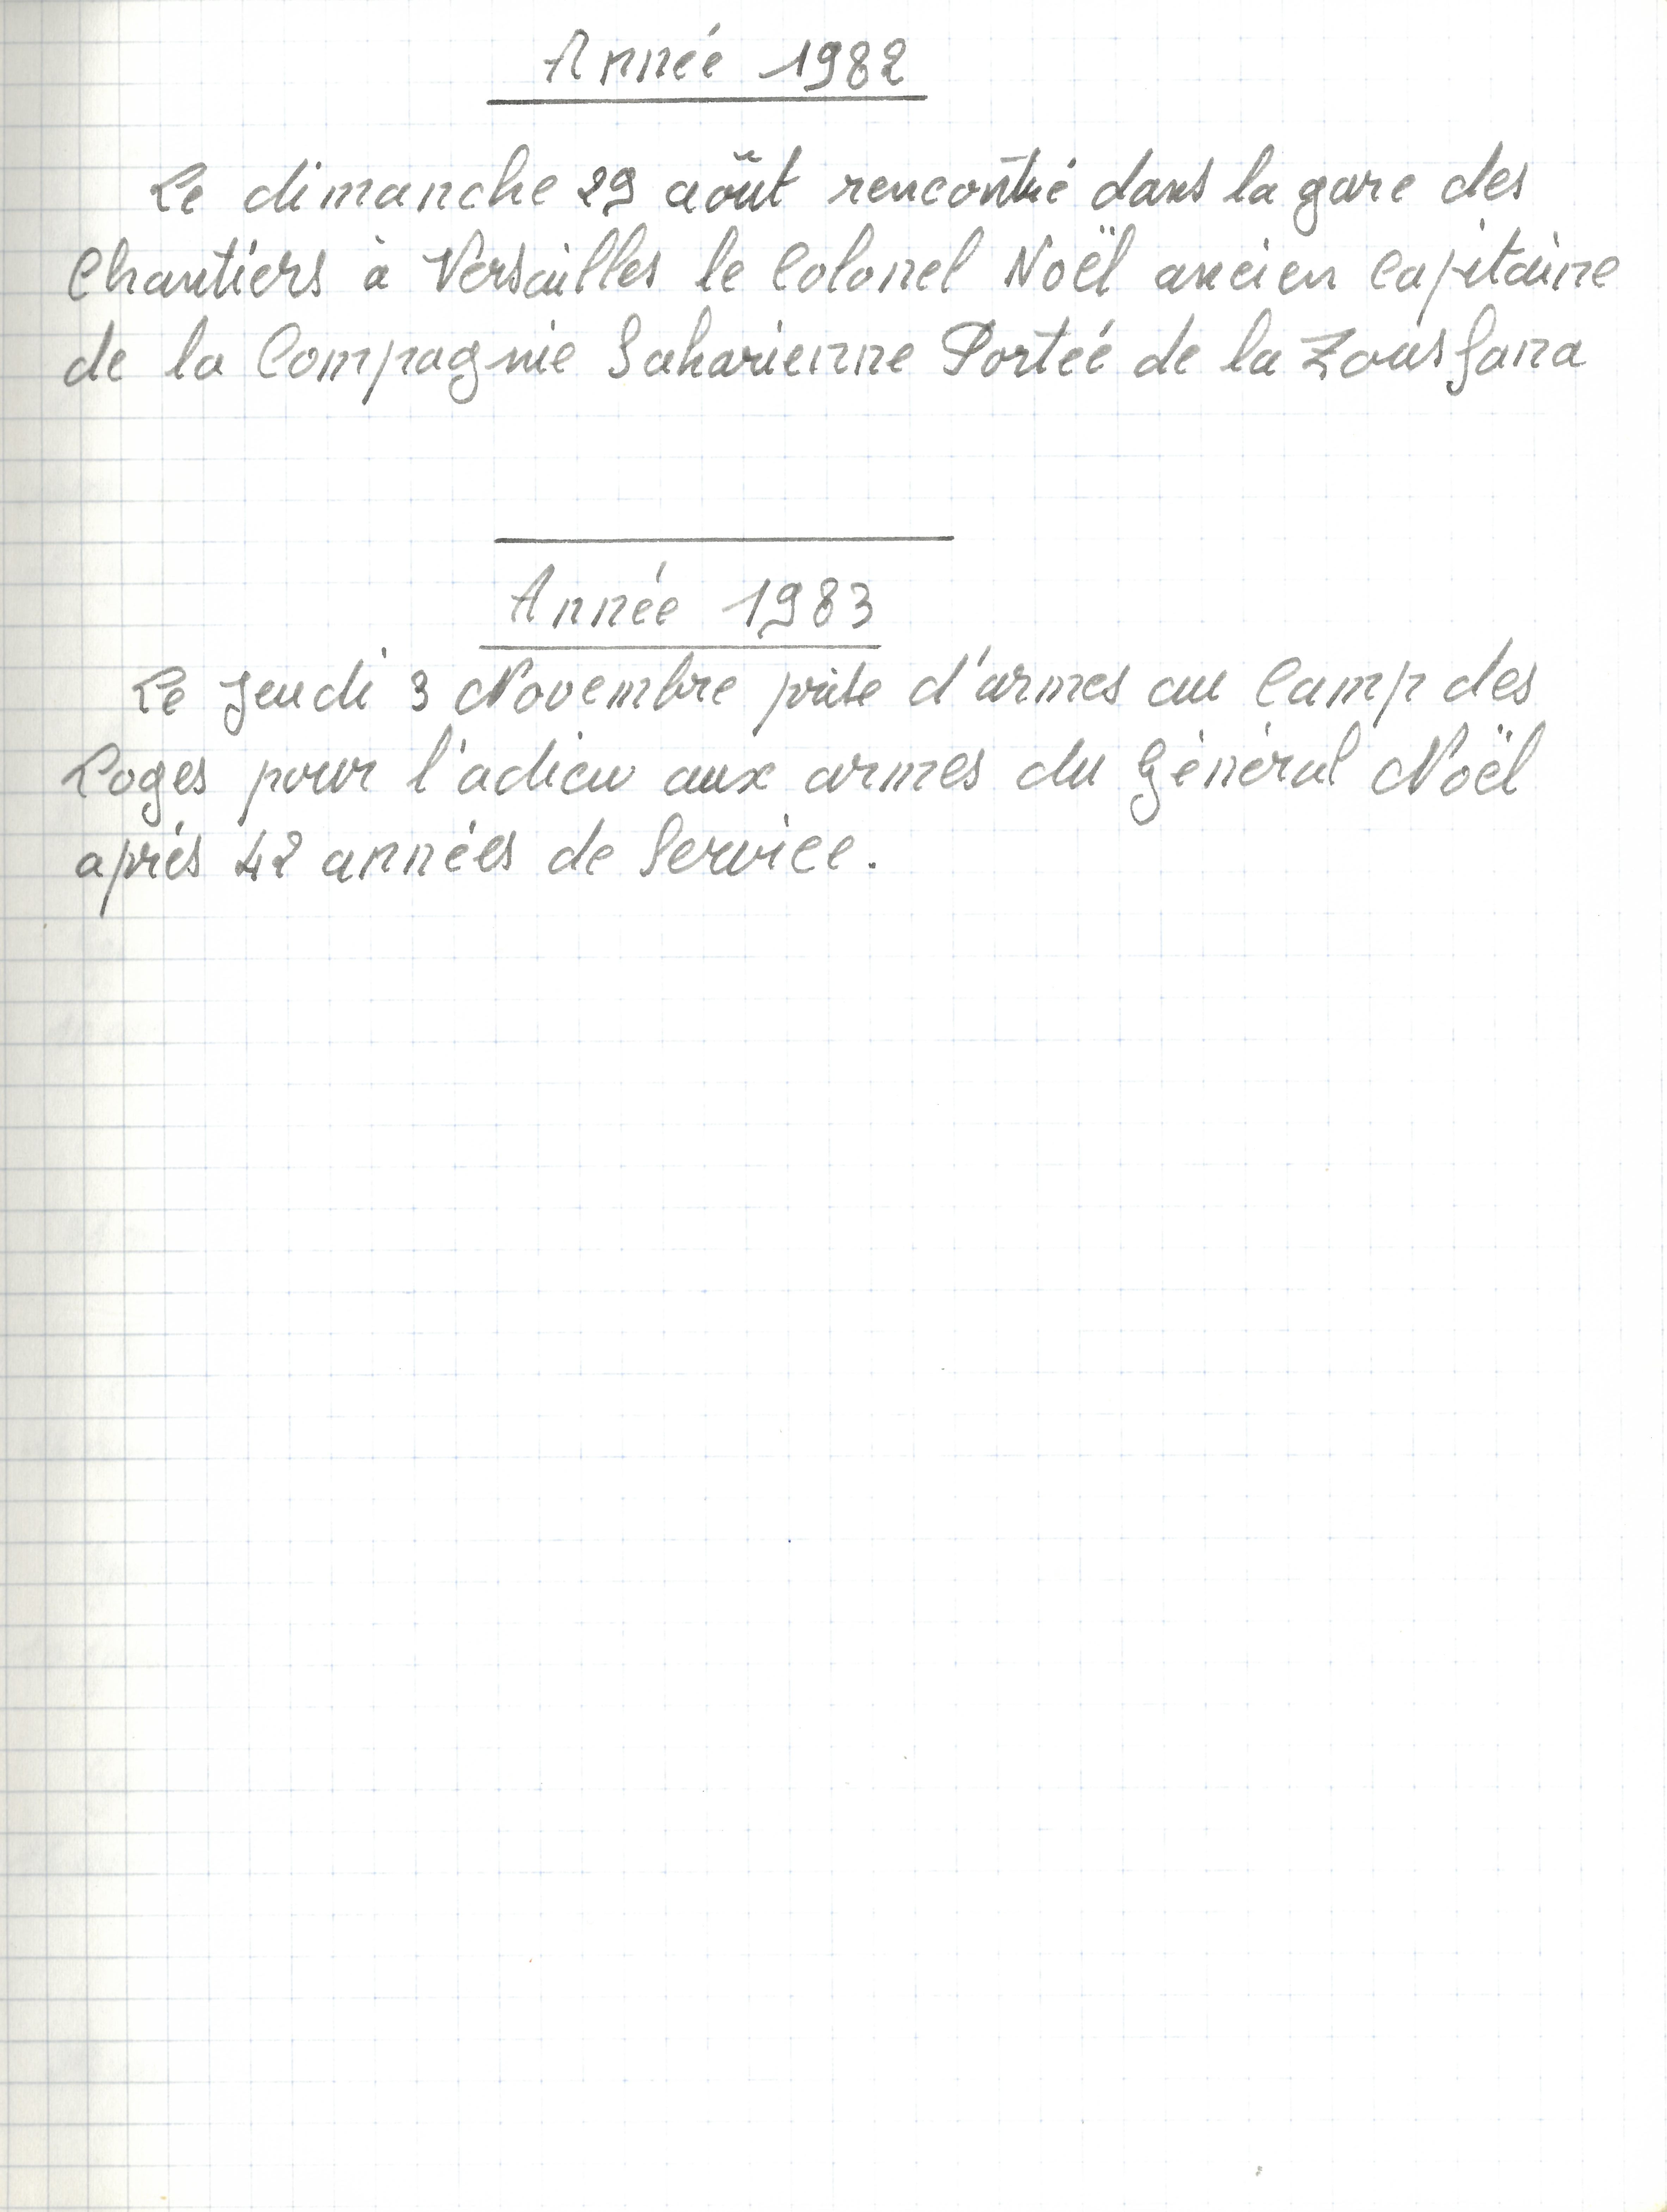 Année 1982
Le dimanche 29 août rencontré dans la gare des
Chantiers à Versailles le Colonel Noël ancien Capitaine
de la Compagnie Saharienne Portée de la Zousfana
Année 1983
Le Jeudi 3 Novembre prise d'armes au Camp des
Loges pour l'adieu aux armes du Général Noël
aprés 42 années de Service.